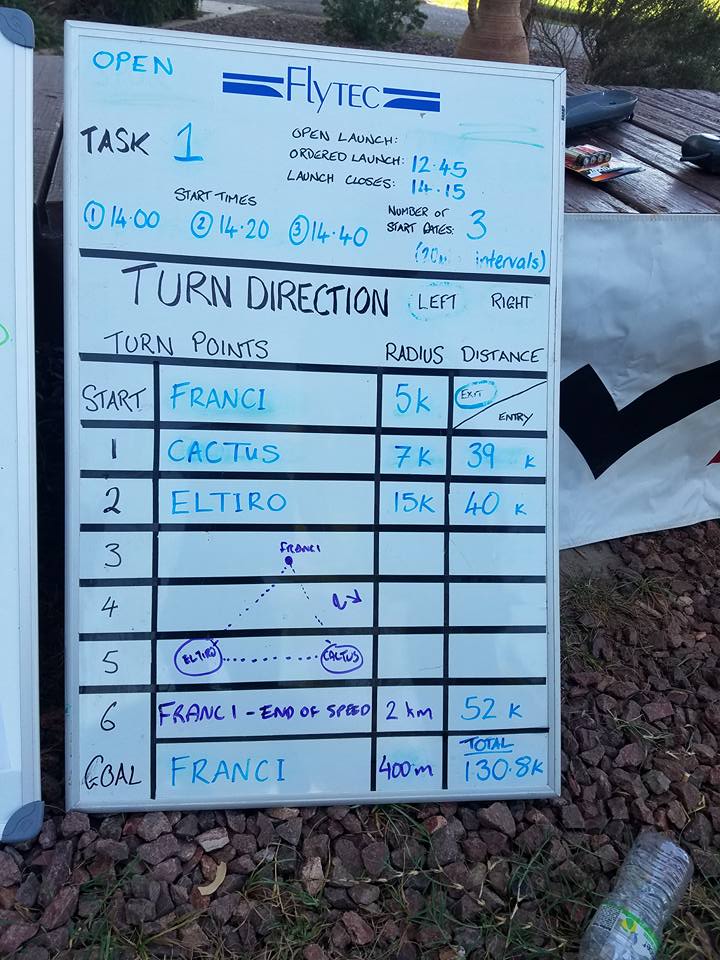 OPEN
FLYTEC
TASK 1
OPEN LAUNCH:
ORDERED LAUNCH: 12.45
LAUNCH CLOSES: 14.15
START TIMES
① 14.00 ② 14.20 ③ 14.40
NUMBER OF
START GATES: 3
intervals)
TURN DIRECTION LEFT RIGHT
TURN POINTS RADIUS DISTANCE
START FRANCI 5K EXIT
ENTRY
1 CACTUS 7K 39 K
2 ELTIRO 15K 40 K
3 FRANCI
4
5 ELTIRO CACTUS
6 FRANCI - END OF SPEED 2 km 52 K
GOAL FRANCI 400m TOTAL
130.8K